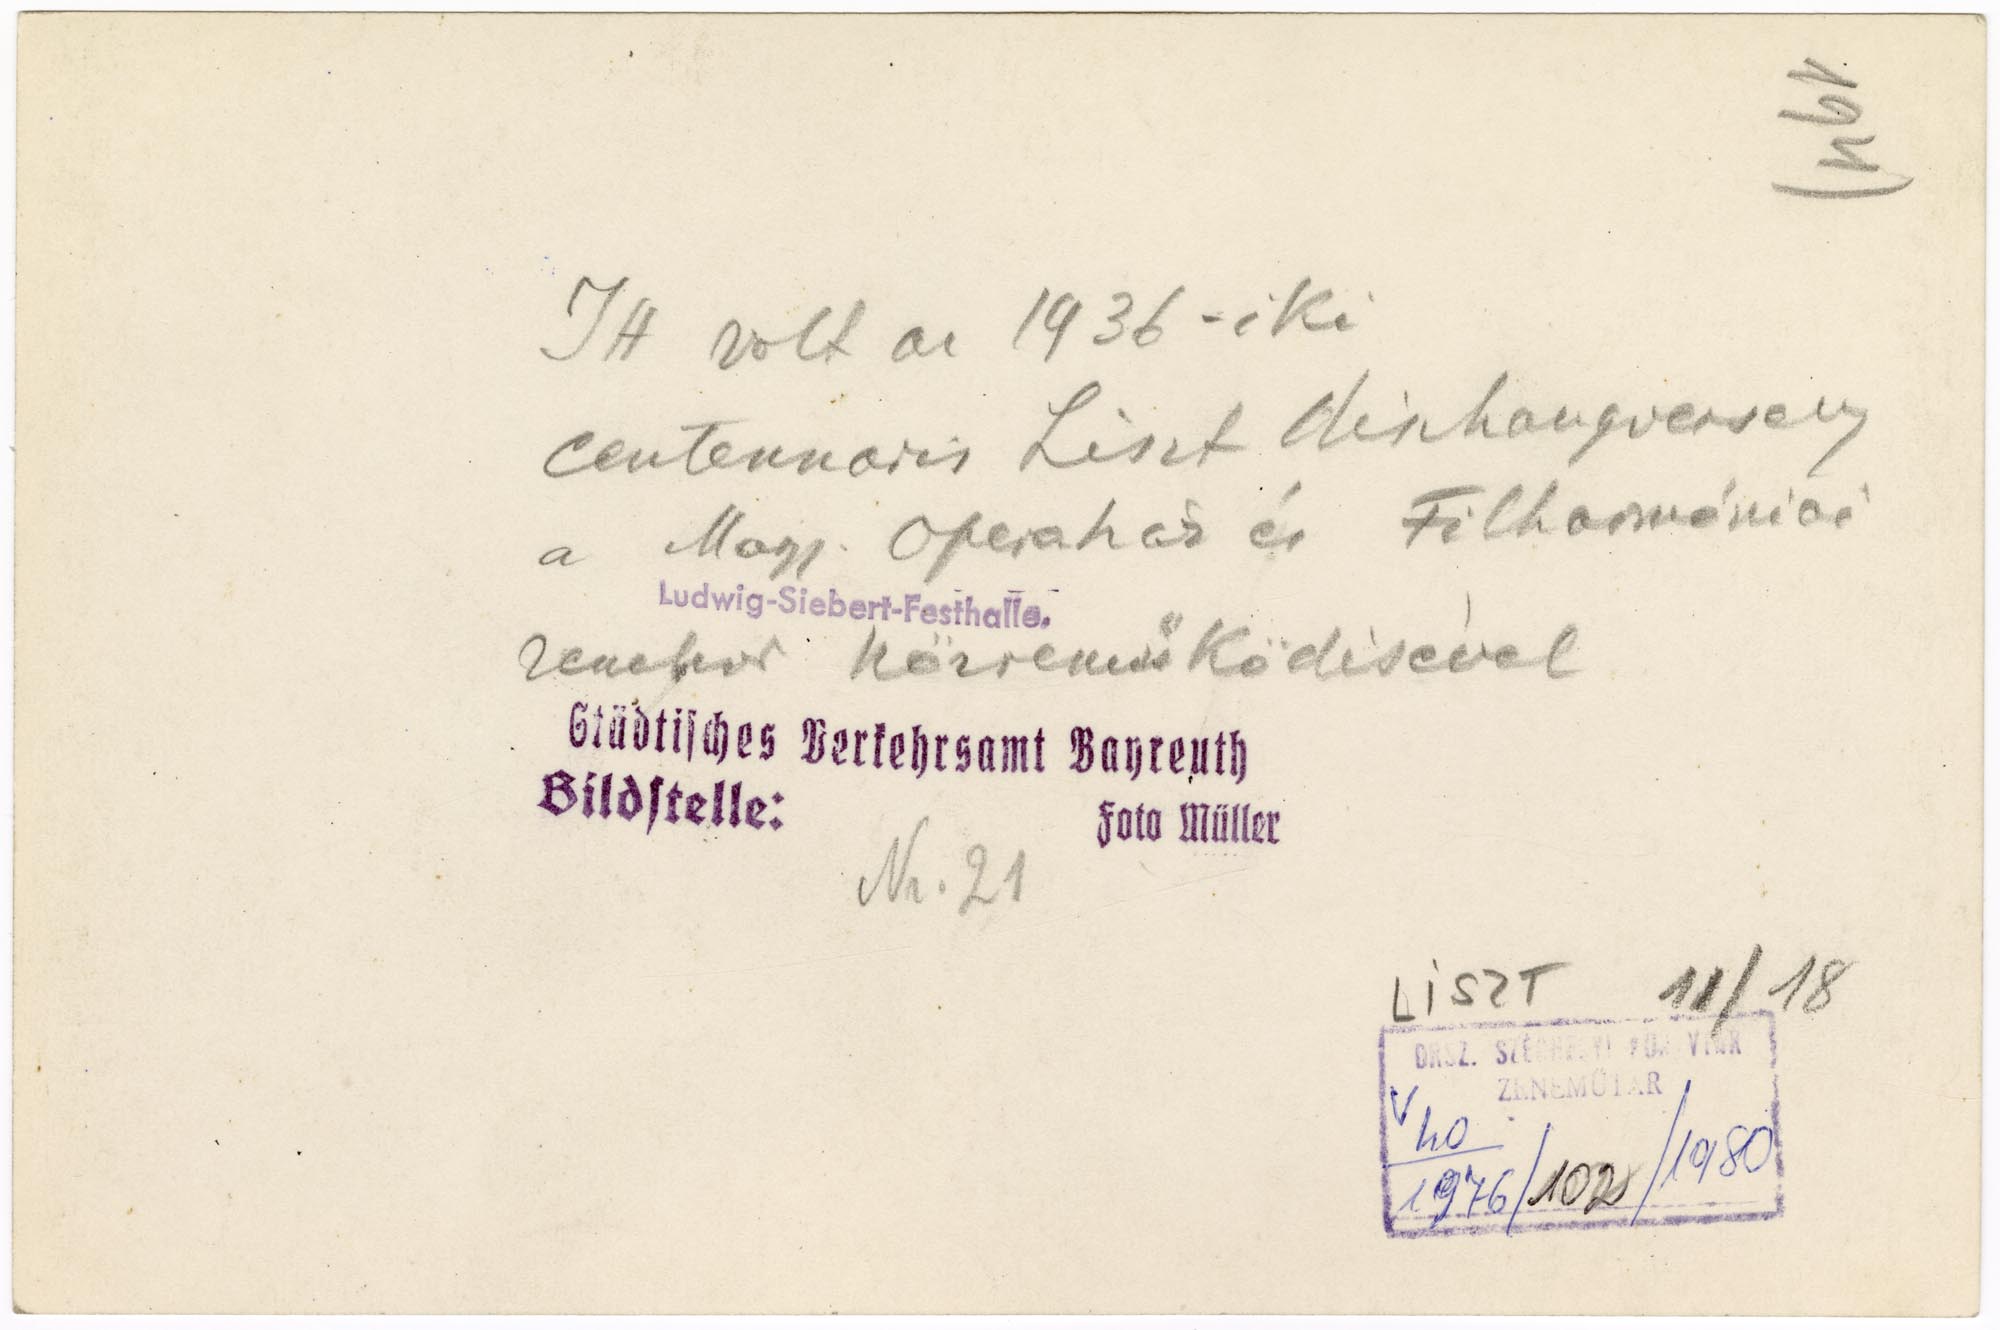 Itt volt az 1936-iki
centennáris Liszt díszhangverseny
a Magy. Operaház és Filharmóniai
Ludwig-Siebert-Festhalle.
zenekar közreműködésével
Städtisches Verkehrsamt Bayreuth
Bildstelle: Foto Müller
Nr. 21
LISZT 11/18
ORSZ. SZÉCHÉNYI KÖNYVTÁR
ZENEMŰTÁR
1976/102/1980